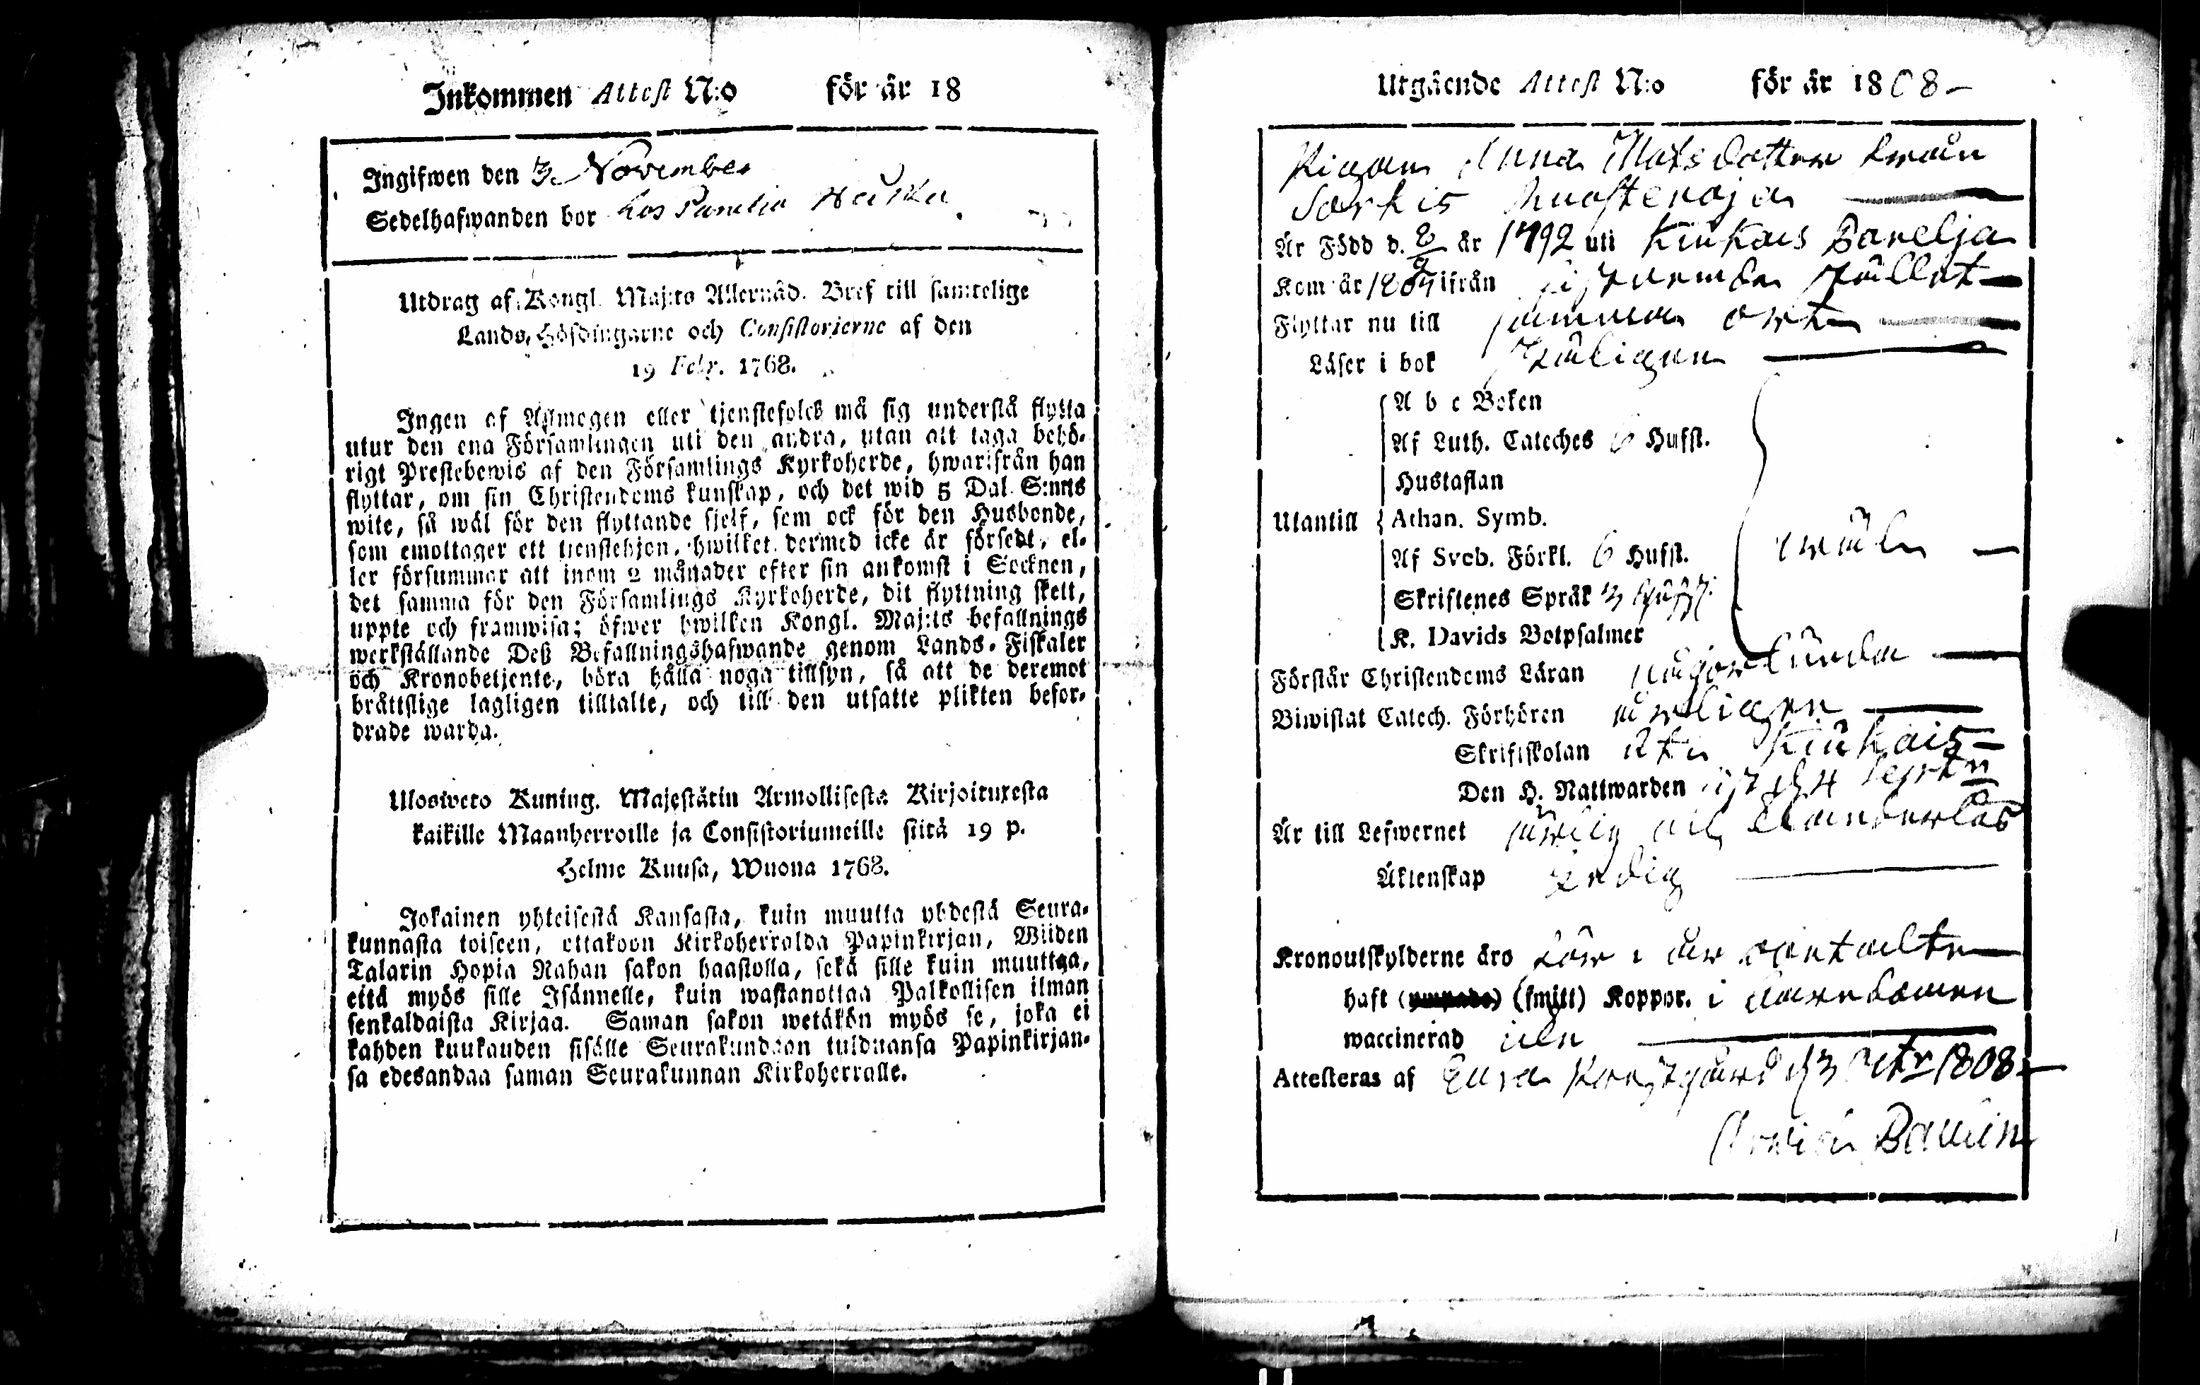 Inkommen Attest N:o för år 18
Ingifwen den 3 November
Sedelhafwanden bor hos Panelia
Utdrag af Kongl. Maj:ts Allernåd. Bref till samtelige
Lands-Höfdingarne och Consistorierne af den
19 Febr. 1768.
Ingen af Allmogen eller tjenstefolck må sig understå flytta
utur den ena Församlingen uti den andra, utan att taga behö-
rigt Prestebewis af den Församlings Kyrkoherde, hwarifrån han
flyttar, om sin Christendoms kunskap, och det wid 5 Dal. S:mts
wite, så wäl för den flyttande sjelf, som ock för den Husbonde,
som emottager ett tienstehjon, hwilket dermed icke är försedt, el-
ler försummar att inom 2 månader efter sin ankomst i Socknen,
det samma för den Församlings Kyrkoherde, dit flyttning skett,
uppte och framwisa; öfwer hwilken Kongl. Maj:ts befallnings
werkställande Deß Befallningshafwande genom Lands-Fiskaler
och Kronobetjente, böra hålla noga tillsyn, så att de deremot
bråttslige lagligen tilltalte, och till den utsatte plikten befor-
drade warda.
Ulosweto Kuning. Majestätin Armollisesta Kirjoituxesta
kaikille Maanherroille ja Consistoriumeille siitä 19 p.
Helme Kuusa, Wuona 1768.
Jokainen yhteisestä Kansasta, kuin muutta yhdestä Seura-
kunnasta toiseen, ottakoon Kirkoherralda Papinkirjan, Wiiden
Talarin Hopia Rahan sakon haastolla, sekä sille kuin muuttaa,
että myös sille Isännelle, kuin wastanottaa Palkollisen ilman
senkaldaista Kirjaa. Saman sakon wetäkön myös se, joka ei
kahden kuukauden sisälle Seurakundaan tulduansa Papinkirjan-
sa edesandaa saman Seurakunnan Kirkoherralle.
Utgående Attest N:o för år 1808
Pigan Anna Matsdotter från
Sorkis
Är Född d. 8/9 år 1792 uti Kiukais Panelja
Kom år ifrån
Flyttar nu till samma ort
Läser i bok
A b c Boken
Af Luth. Cateches 6 Hufst.
Hustaflan
Utantill Athan. Symb.
Af Sveb. Förkl. 6 Hufst.
Skriftenes Språk 3
K. Davids Botpsalmer
Förstår Christendoms Läran någorlunda
Biwistat Catech. Förhören årligen
Skriftskolan uti Kiukais
Den H. Nattwarden
Är till Lefwernet ärlig och klanderlös
Äktenskap Ledig
Kronoutskylderne äro för i år
haft (ympade) (smitt) Koppor. i barndomen
waccinerad
Attesteras af Eura Prestgård d. 3 1808